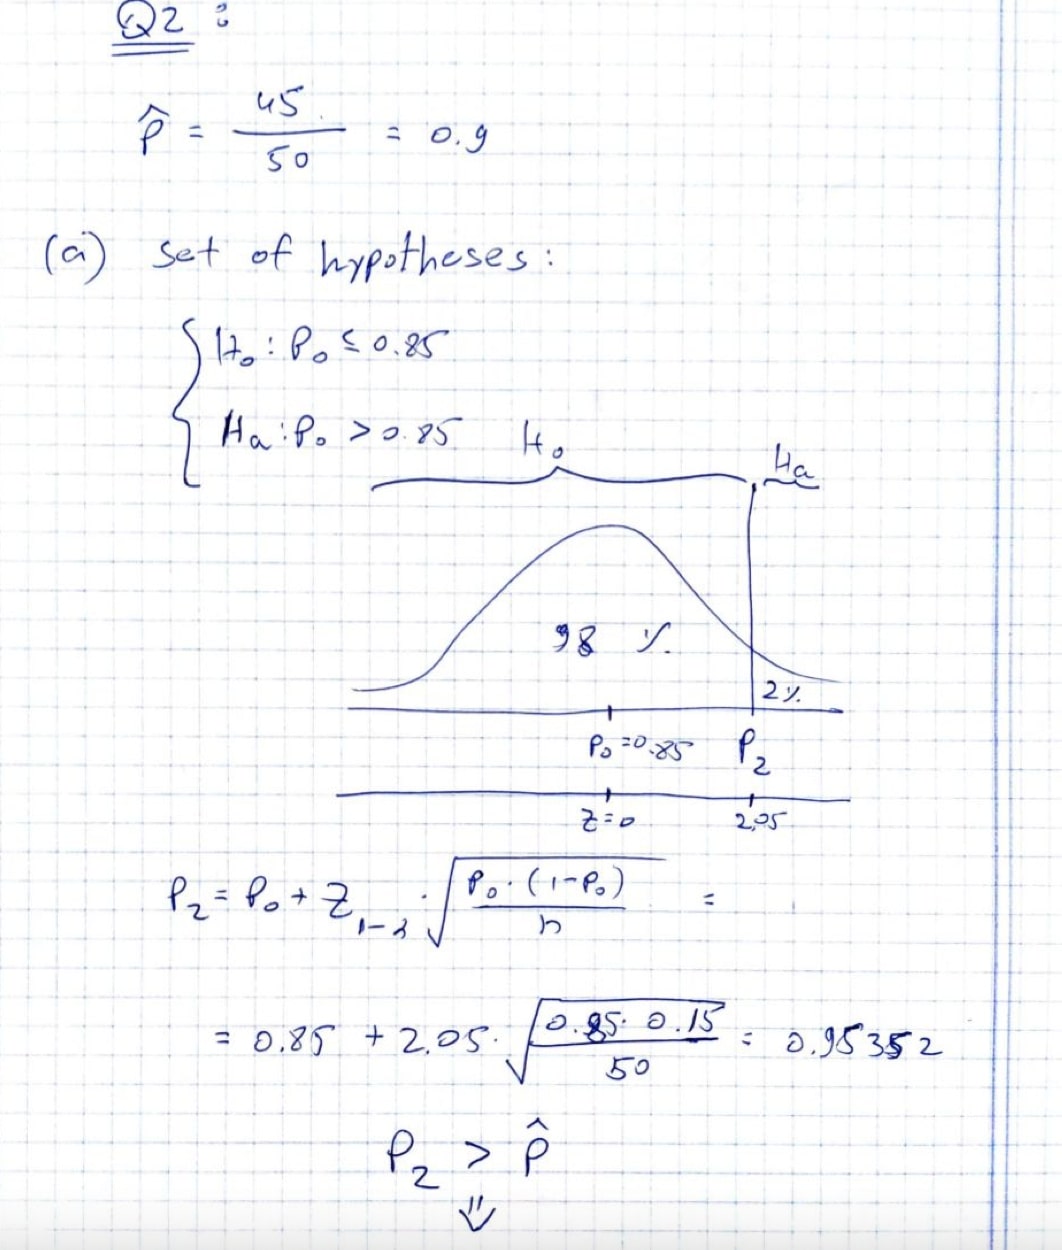 Q2 :
p̂ = 45/50 = 0.9
(a) set of hypotheses:
H₀ : P₀ ≤ 0.85
Ha : P₀ > 0.85
H₀
Ha
98 %
2%
P₀ = 0.85 P₂
Z=0 2,05
P₂ = P₀ + Z₁₋α · √(P₀ · (1-P₀)/n) =
= 0.85 + 2.05 · √(0.85 · 0.15/50) = 0.95352
P₂ > p̂
⇓